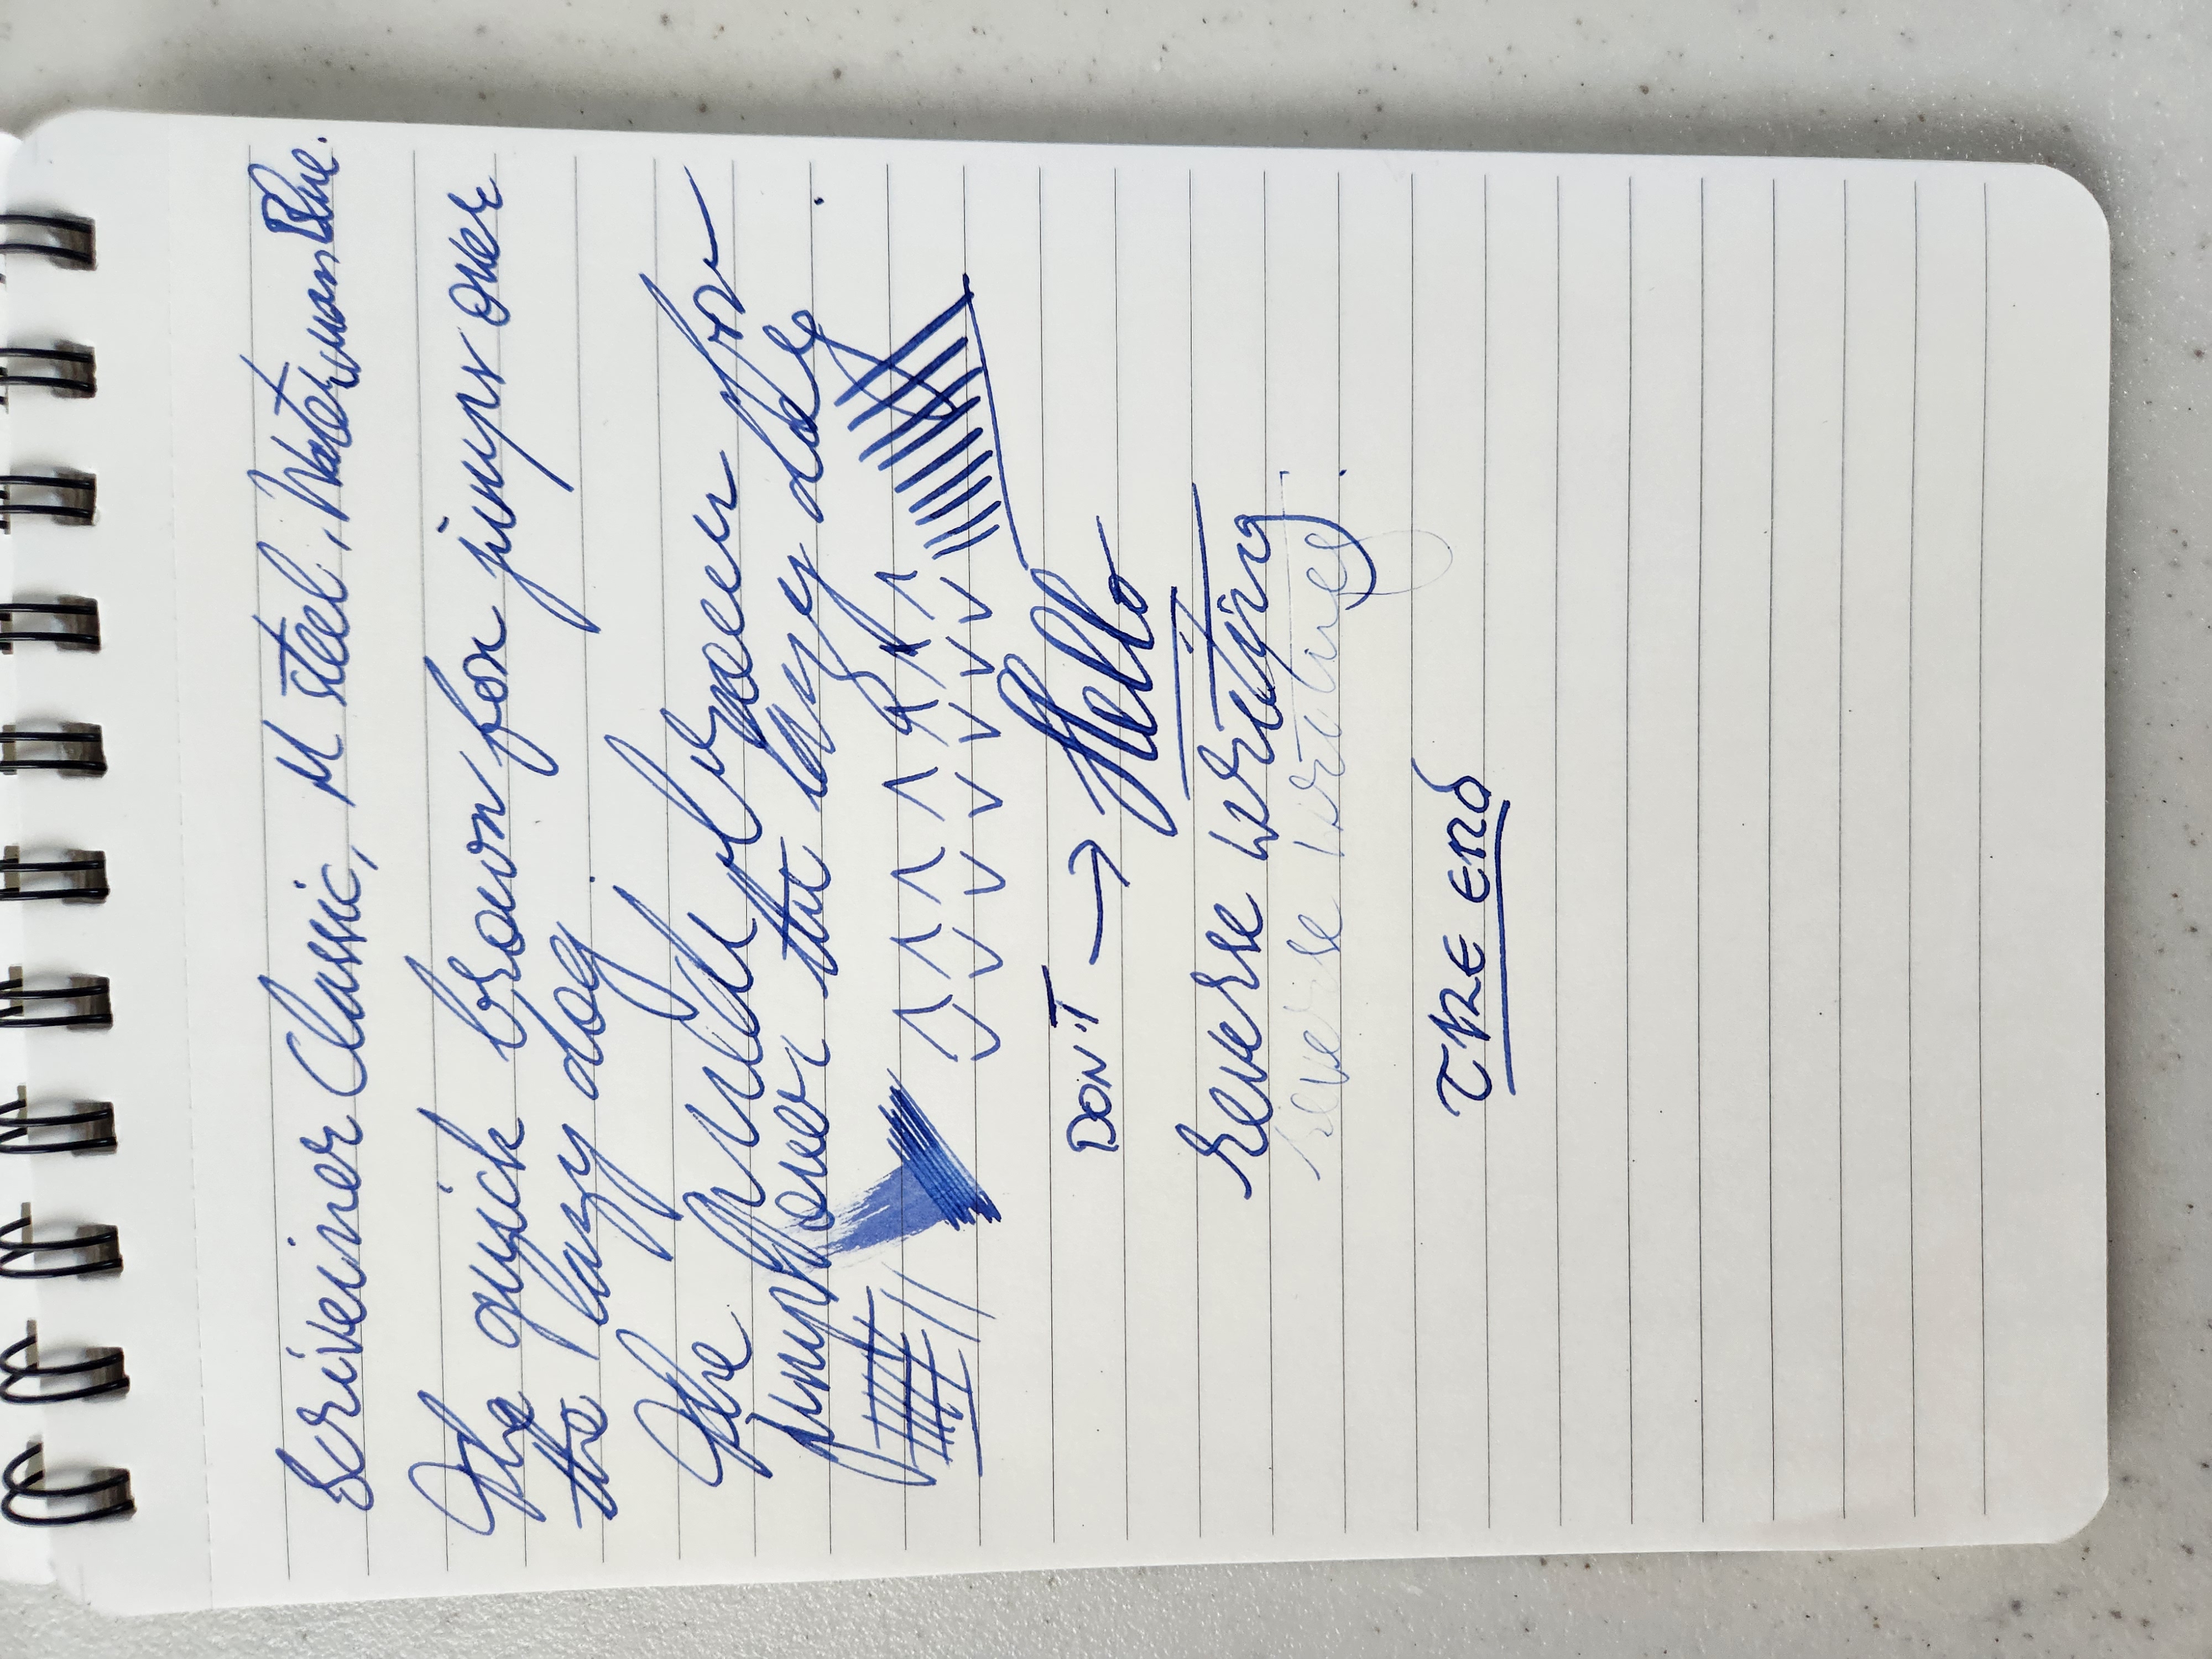 Scriveiner Classic, M steel, Waterman Blue.
The quick brown fox jumps over
the lazy dog.
The quick brown fox
jumps over the lazy dog.
DON'T → Hello
reverse writing
reverse writing.
The end